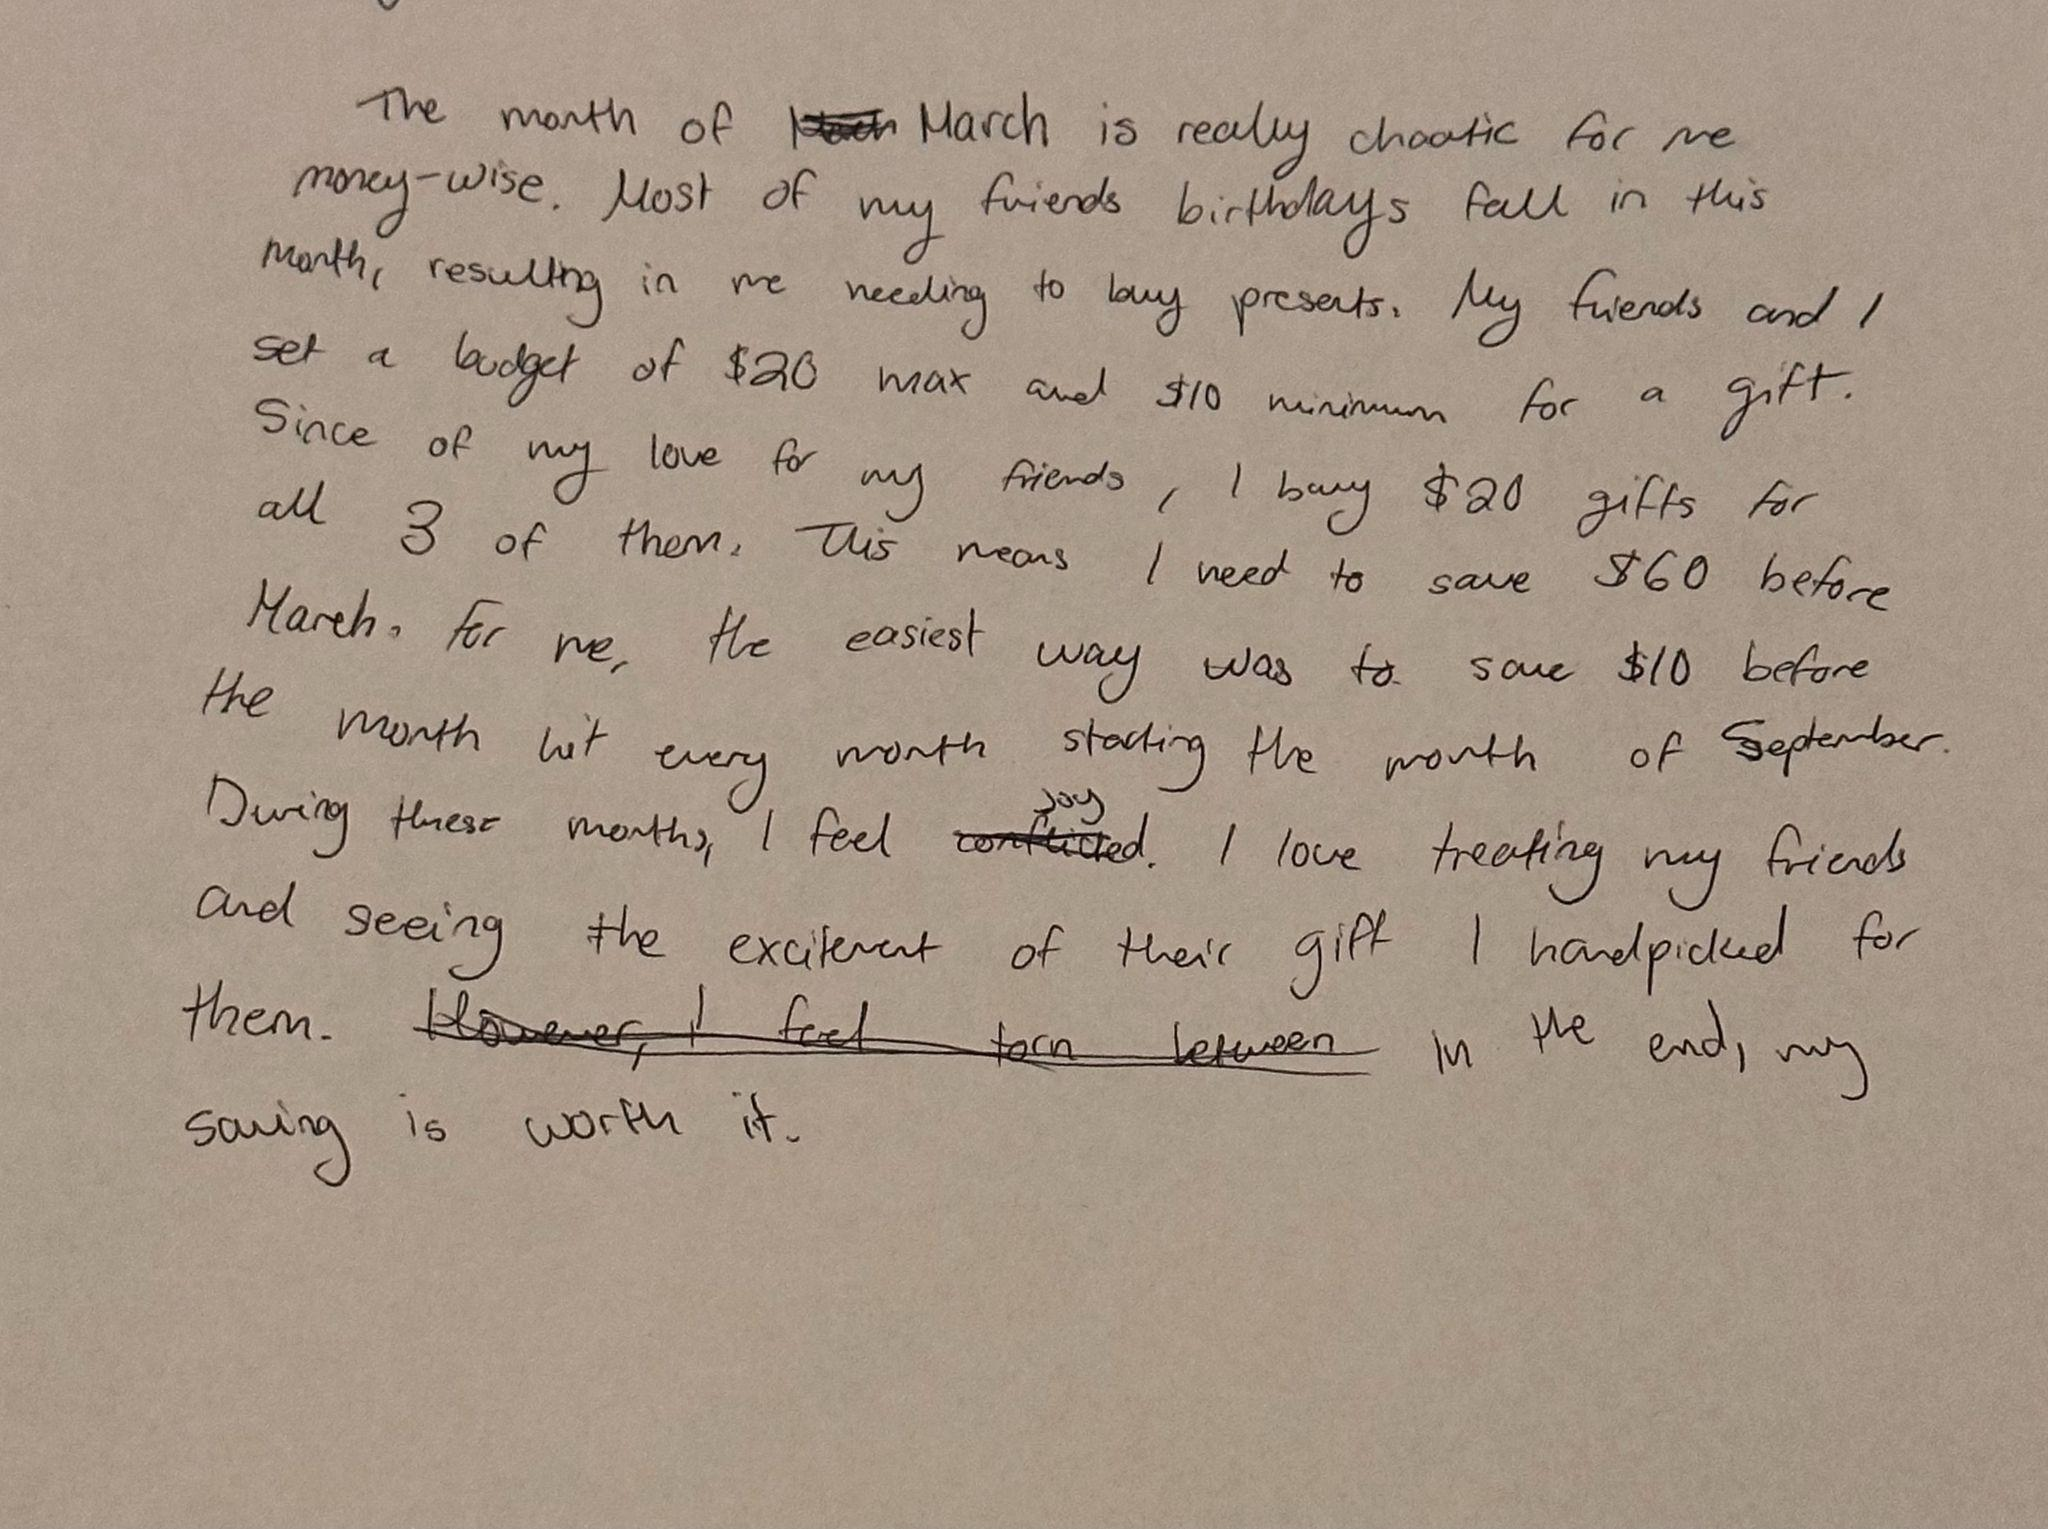 The month of March is really chaotic for me
money-wise. Most of my friends birthdays fall in this
month, resulting in me needing to buy presents. My friends and I
set a budget of $20 max and $10 minimum for a gift.
Since of my love for my friends, I buy $20 gifts for
all 3 of them. This means I need to save $60 before
March. For me, the easiest way was to save $10 before
the month hit every month starting the month of September.
During these months, I feel conflicted. joy I love treating my friends
and seeing the excitement of their gift I handpicked for
them. However, I feel torn between In the end, my
saving is worth it.